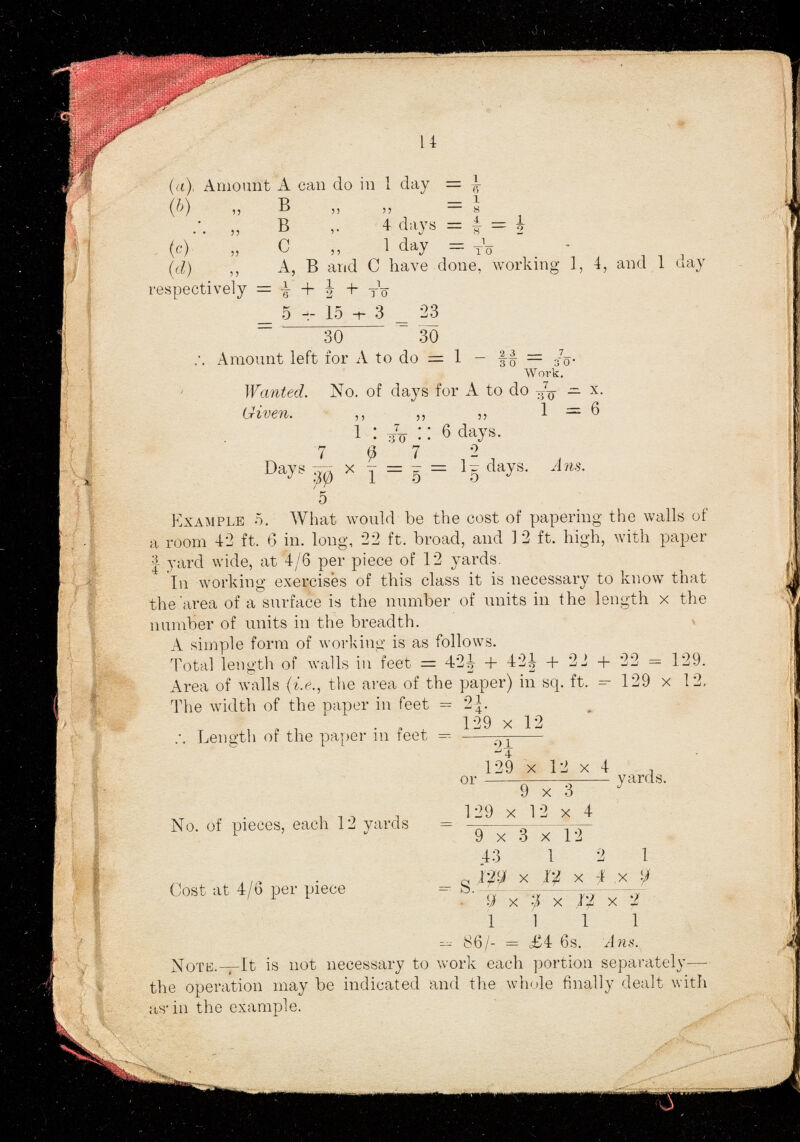 14
(a). Amount A can do in 1 day = 1/6
(b) ,, B ,, ,, = 1/8
∴ ,, B ,, 4 days = 4/8 = 1/2
(c) ,, C ,, 1 day = 1/10
(d) ,, A, B and C have done, working 1, 4, and 1 day
respectively = 1/6 + 1/2 + 1/10
= (5 + 15 + 3)/30 = 23/30
∴ Amount left for A to do = 1 - 23/30 = 7/30.
Work.
Wanted. No. of days for A to do 7/30 = x.
Given. ,, ,, ,, 1 = 6
1 : 7/30 :: 6 days.
Days 7/30 × 6/1 = 7/5 = 1 2/5 days. Ans.
5
EXAMPLE 5. What would be the cost of papering the walls of
a room 42 ft. 6 in. long, 22 ft. broad, and 12 ft. high, with paper
3/4 yard wide, at 4/6 per piece of 12 yards.
In working exercises of this class it is necessary to know that
the area of a surface is the number of units in the length × the
number of units in the breadth.
A simple form of working is as follows.
Total length of walls in feet = 42½ + 42½ + 22 + 22 = 129.
Area of walls (i.e., the area of the paper) in sq. ft. = 129 × 12.
The width of the paper in feet = 2¼.
∴ Length of the paper in feet = (129 × 12)/2¼
or (129 × 12 × 4)/(9 × 3) yards.
No. of pieces, each 12 yards = (129 × 12 × 4)/(9 × 3 × 12)
43 1 2 1
Cost at 4/6 per piece = S. (129 × 12 × 4 × 9)/(9 × 3 × 12 × 2)
1 1 1 1
= 86/- = £4 6s. Ans.
NOTE.—It is not necessary to work each portion separately—
the operation may be indicated and the whole finally dealt with
as in the example.